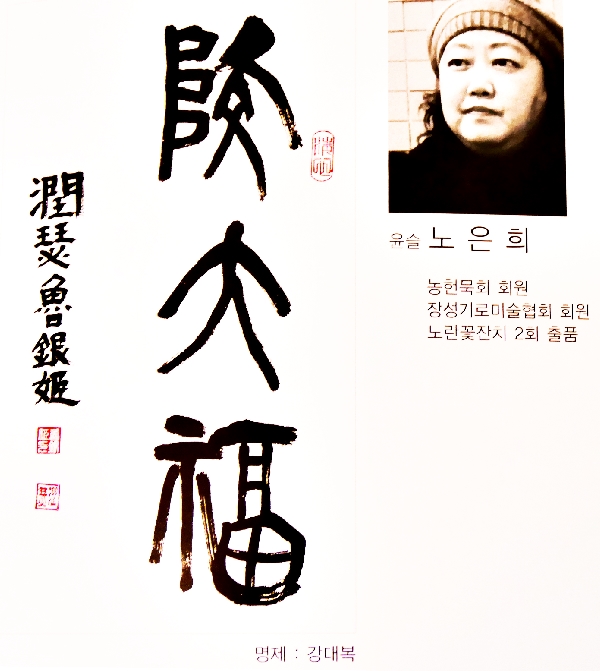 降大福
潤瑟魯銀姬
윤슬 노 은 희
농헌묵회 회원
장성기로미술협회 회원
노란꽃잔치 2회 출품
명제 : 강대복